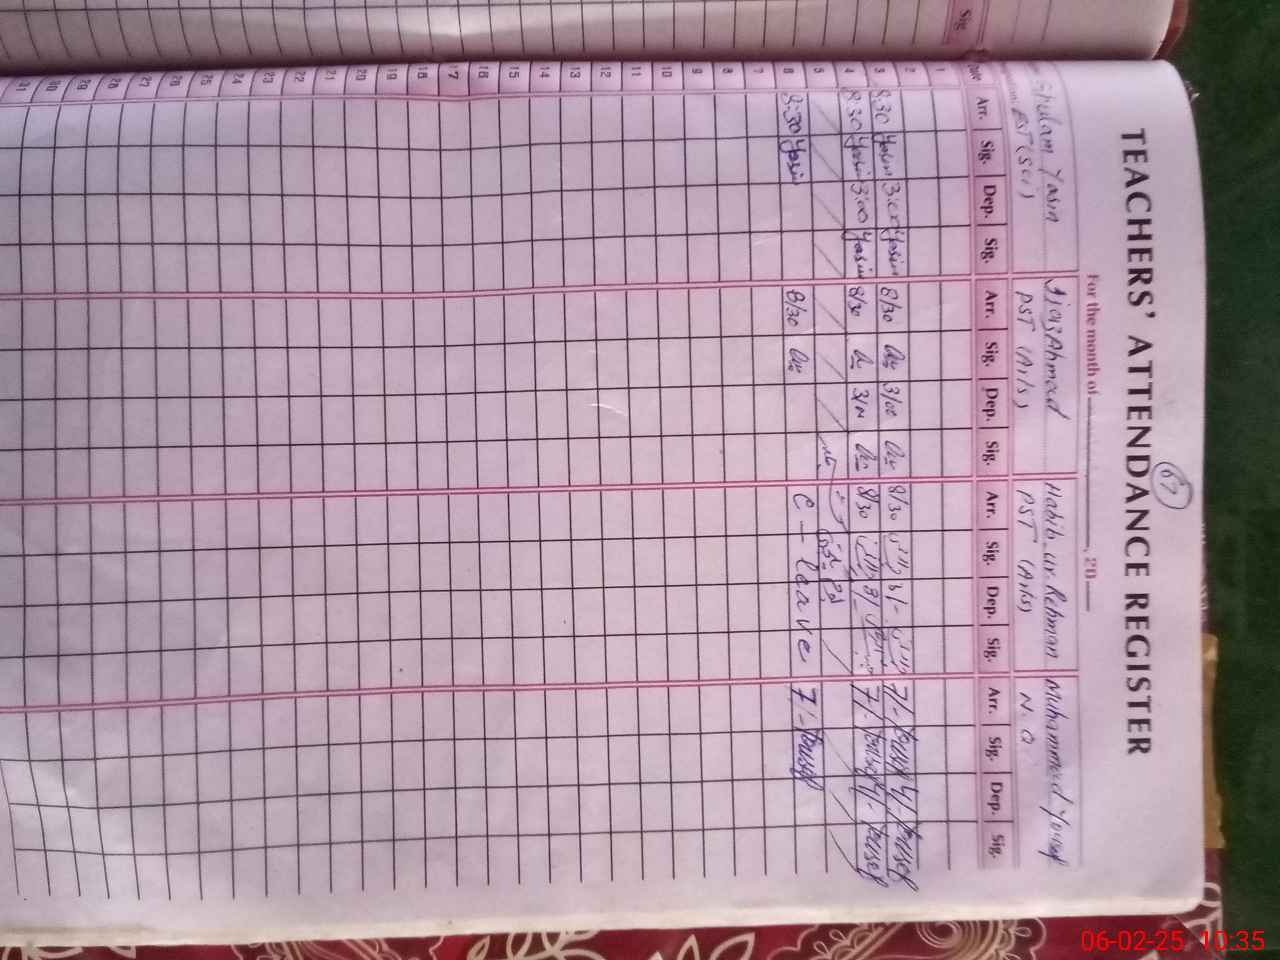 Sig.
67
TEACHERS' ATTENDANCE REGISTER
For the month of ________, 20__
Ghulam Yasin Ijaz Ahmed Habib-ur-Rehman Muhammad Yousef
PST (Sci) PST (Arts) PST (Arts) N.Q
Date Arr. Sig. Dep. Sig. Arr. Sig. Dep. Sig. Arr. Sig. Dep. Sig. Arr. Sig. Dep. Sig.
1
2
3 8:30 Yasin 3:00 Yasin 8/30 3/00 8/30 3/- 7/- Yousef 4/- Yousef
4 8:30 Yasin 3:00 Yasin 8/30 8/30 7/- Yousef 4/- Yousef
5
6 8:30 Yasin 8/30 C-leave 7/- Yousef
7
8
9
10
11
12
13
14
15
16
17
18
19
20
21
22
23
24
25
26
27
28
29
30
31
06-02-25 10:35